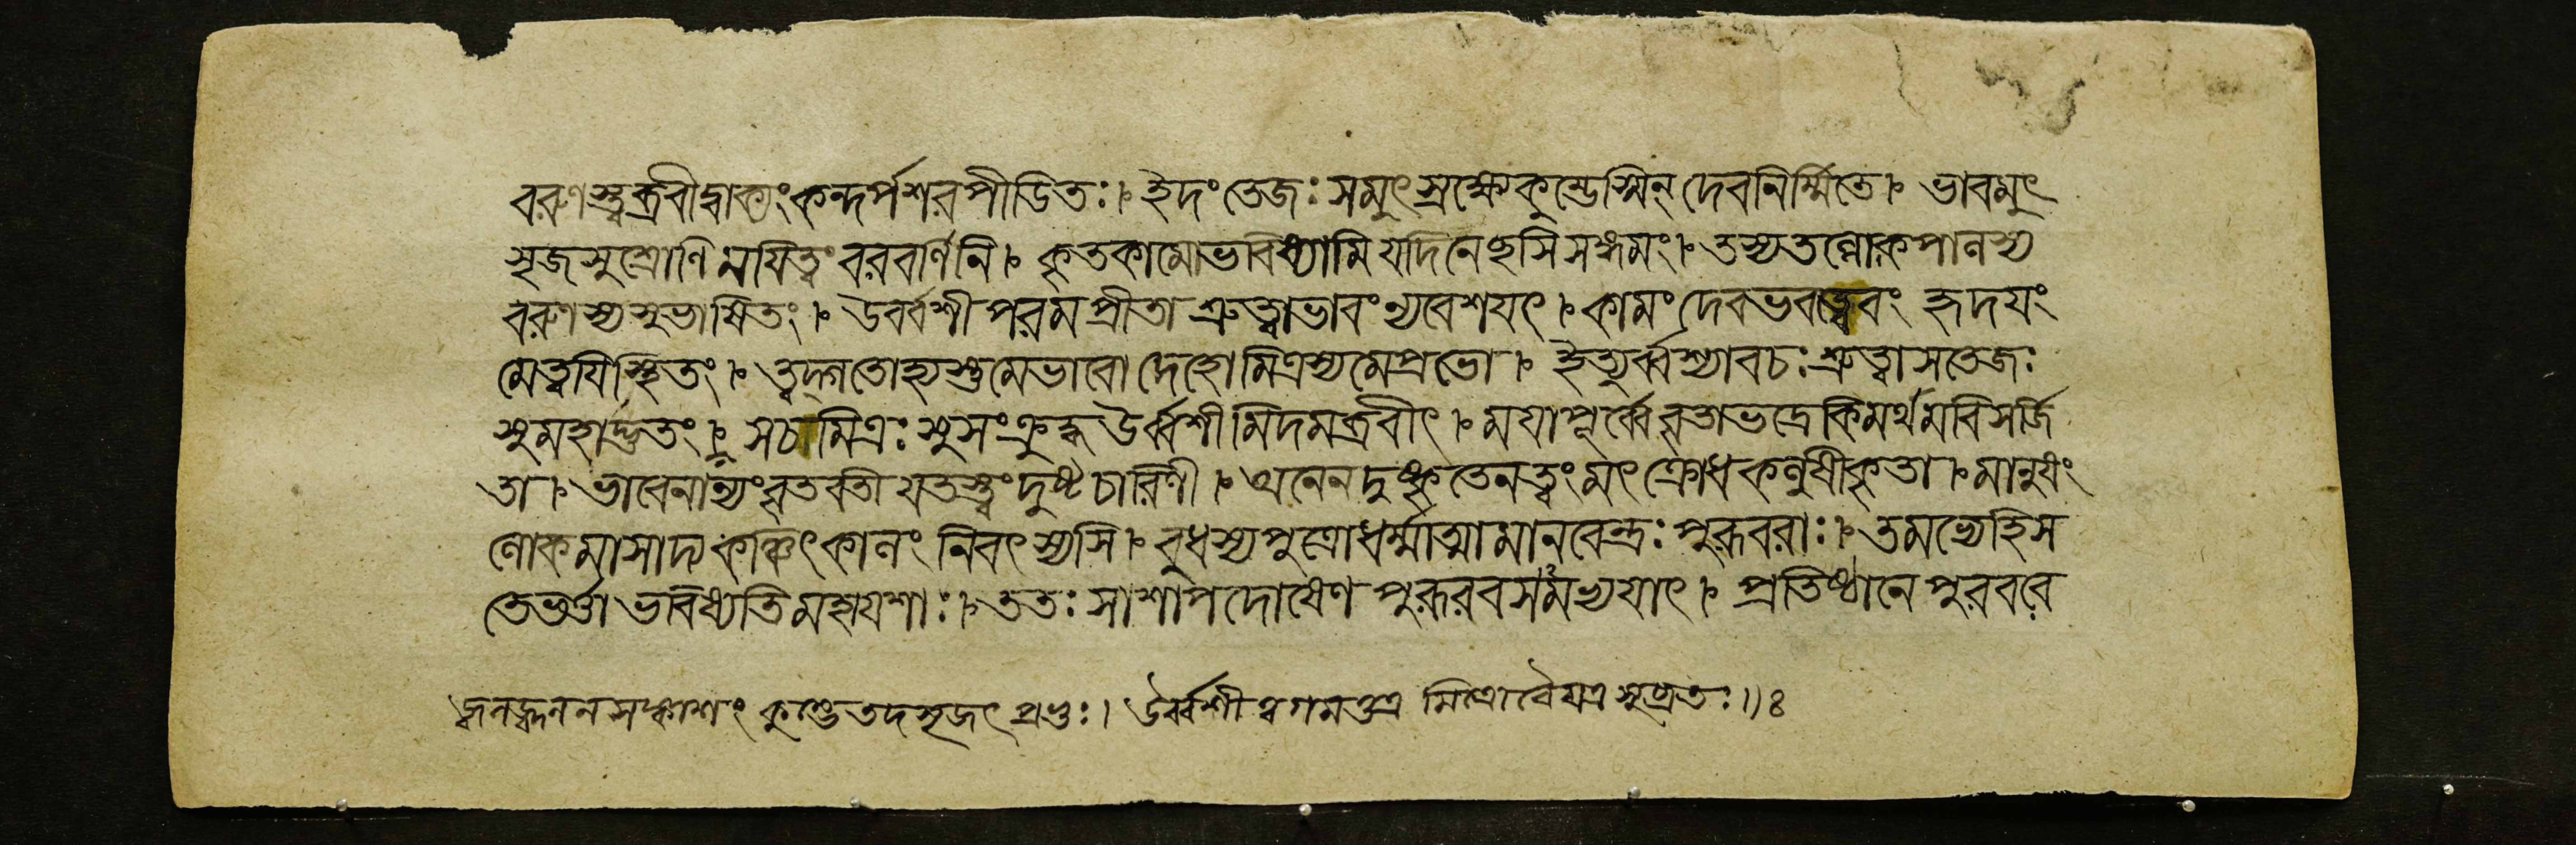 বরুণস্ত্বব্রবীদ্বাক্যং কন্দর্পশরপীডিতঃ। ইদং তেজঃ সমুৎস্রক্ষ্যে কুম্ভেস্মিন্ দেবনির্ম্মিতে। ভাবমুৎ
সৃজ সুশ্রোণি ময়িত্বং বরবর্ণিনি। কৃতকামো ভবিষ্যামি যদি নেছসি সঙ্গমং। তস্য তল্লোকপালস্য
বরুণস্য সুভাষিতং। উবর্বশী পরমপ্রীতা শ্রুত্বা ভাবং ন্যবেশয়ৎ। কামং দেব ভবত্বেবং হৃদয়ং
মে ত্বয়ি স্থিতং। ত্বদ্গতোহ্যস্তু মে ভাবো দেহো মিত্রস্য মে প্রভো। ইত্যুর্ব্বশ্যা বচঃ শ্রুত্বা স তেজঃ
সুমহাদ্ভুতং। স চ মিত্রঃ সুসংক্রুদ্ধ উর্ব্বশীমিদমব্রবীৎ। ময়া পূর্ব্বে বৃতা ভদ্রে কিমর্থমবিসর্জি
তা। ভাবেনান্যং বৃতবতী যতস্ত্বং দুষ্টচারিণী। অনেন দুষ্কৃতেন ত্বং মৎ ক্রোধকলুষীকৃতা। মানুষং
লোকমাসাদ্য কঞ্চিৎ কালং নিবৎস্যসি। বুধস্য পুত্রো ধর্ম্মাত্মা মানবেন্দ্রঃ পুরূবরাঃ। তমভ্যেহি স
তে ভর্ত্তা ভবিষ্যতি মহাযশাঃ। ততঃ সা শাপদোষেণ পুরূরবসমভ্যয়াৎ। প্রতিষ্ঠানে পুরবরে
জ্বলজ্জ্বলনসঙ্কাশং কুম্ভে তদসৃজৎ প্রভুঃ। উর্ব্বশী ত্বগমত্তত্র মিত্রো বৈ যত্র সুপ্রতঃ॥ ৪